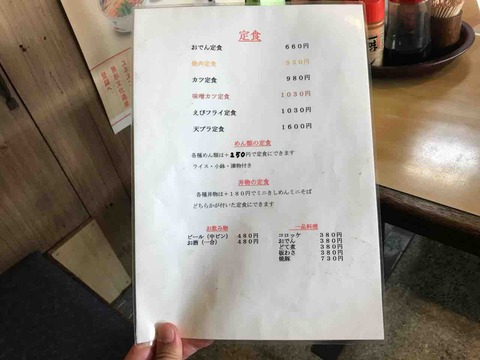 定食
おでん定食 660円
焼肉定食 930円
カツ定食 980円
味噌カツ定食 1030円
えびフライ定食 1030円
天プラ定食 1600円
めん類の定食
各種めん類は+250円で定食にできます
ライス・小鉢・漬物付き
丼物の定食
各種丼物は+180円でミニきしめんミニそば
どちらかが付いた定食にできます
お飲み物
ビール(中ビン) 480円
お酒(一合) 480円
一品料理
コロッケ 380円
おでん 380円
どて煮 380円
板わさ 380円
焼豚 730円